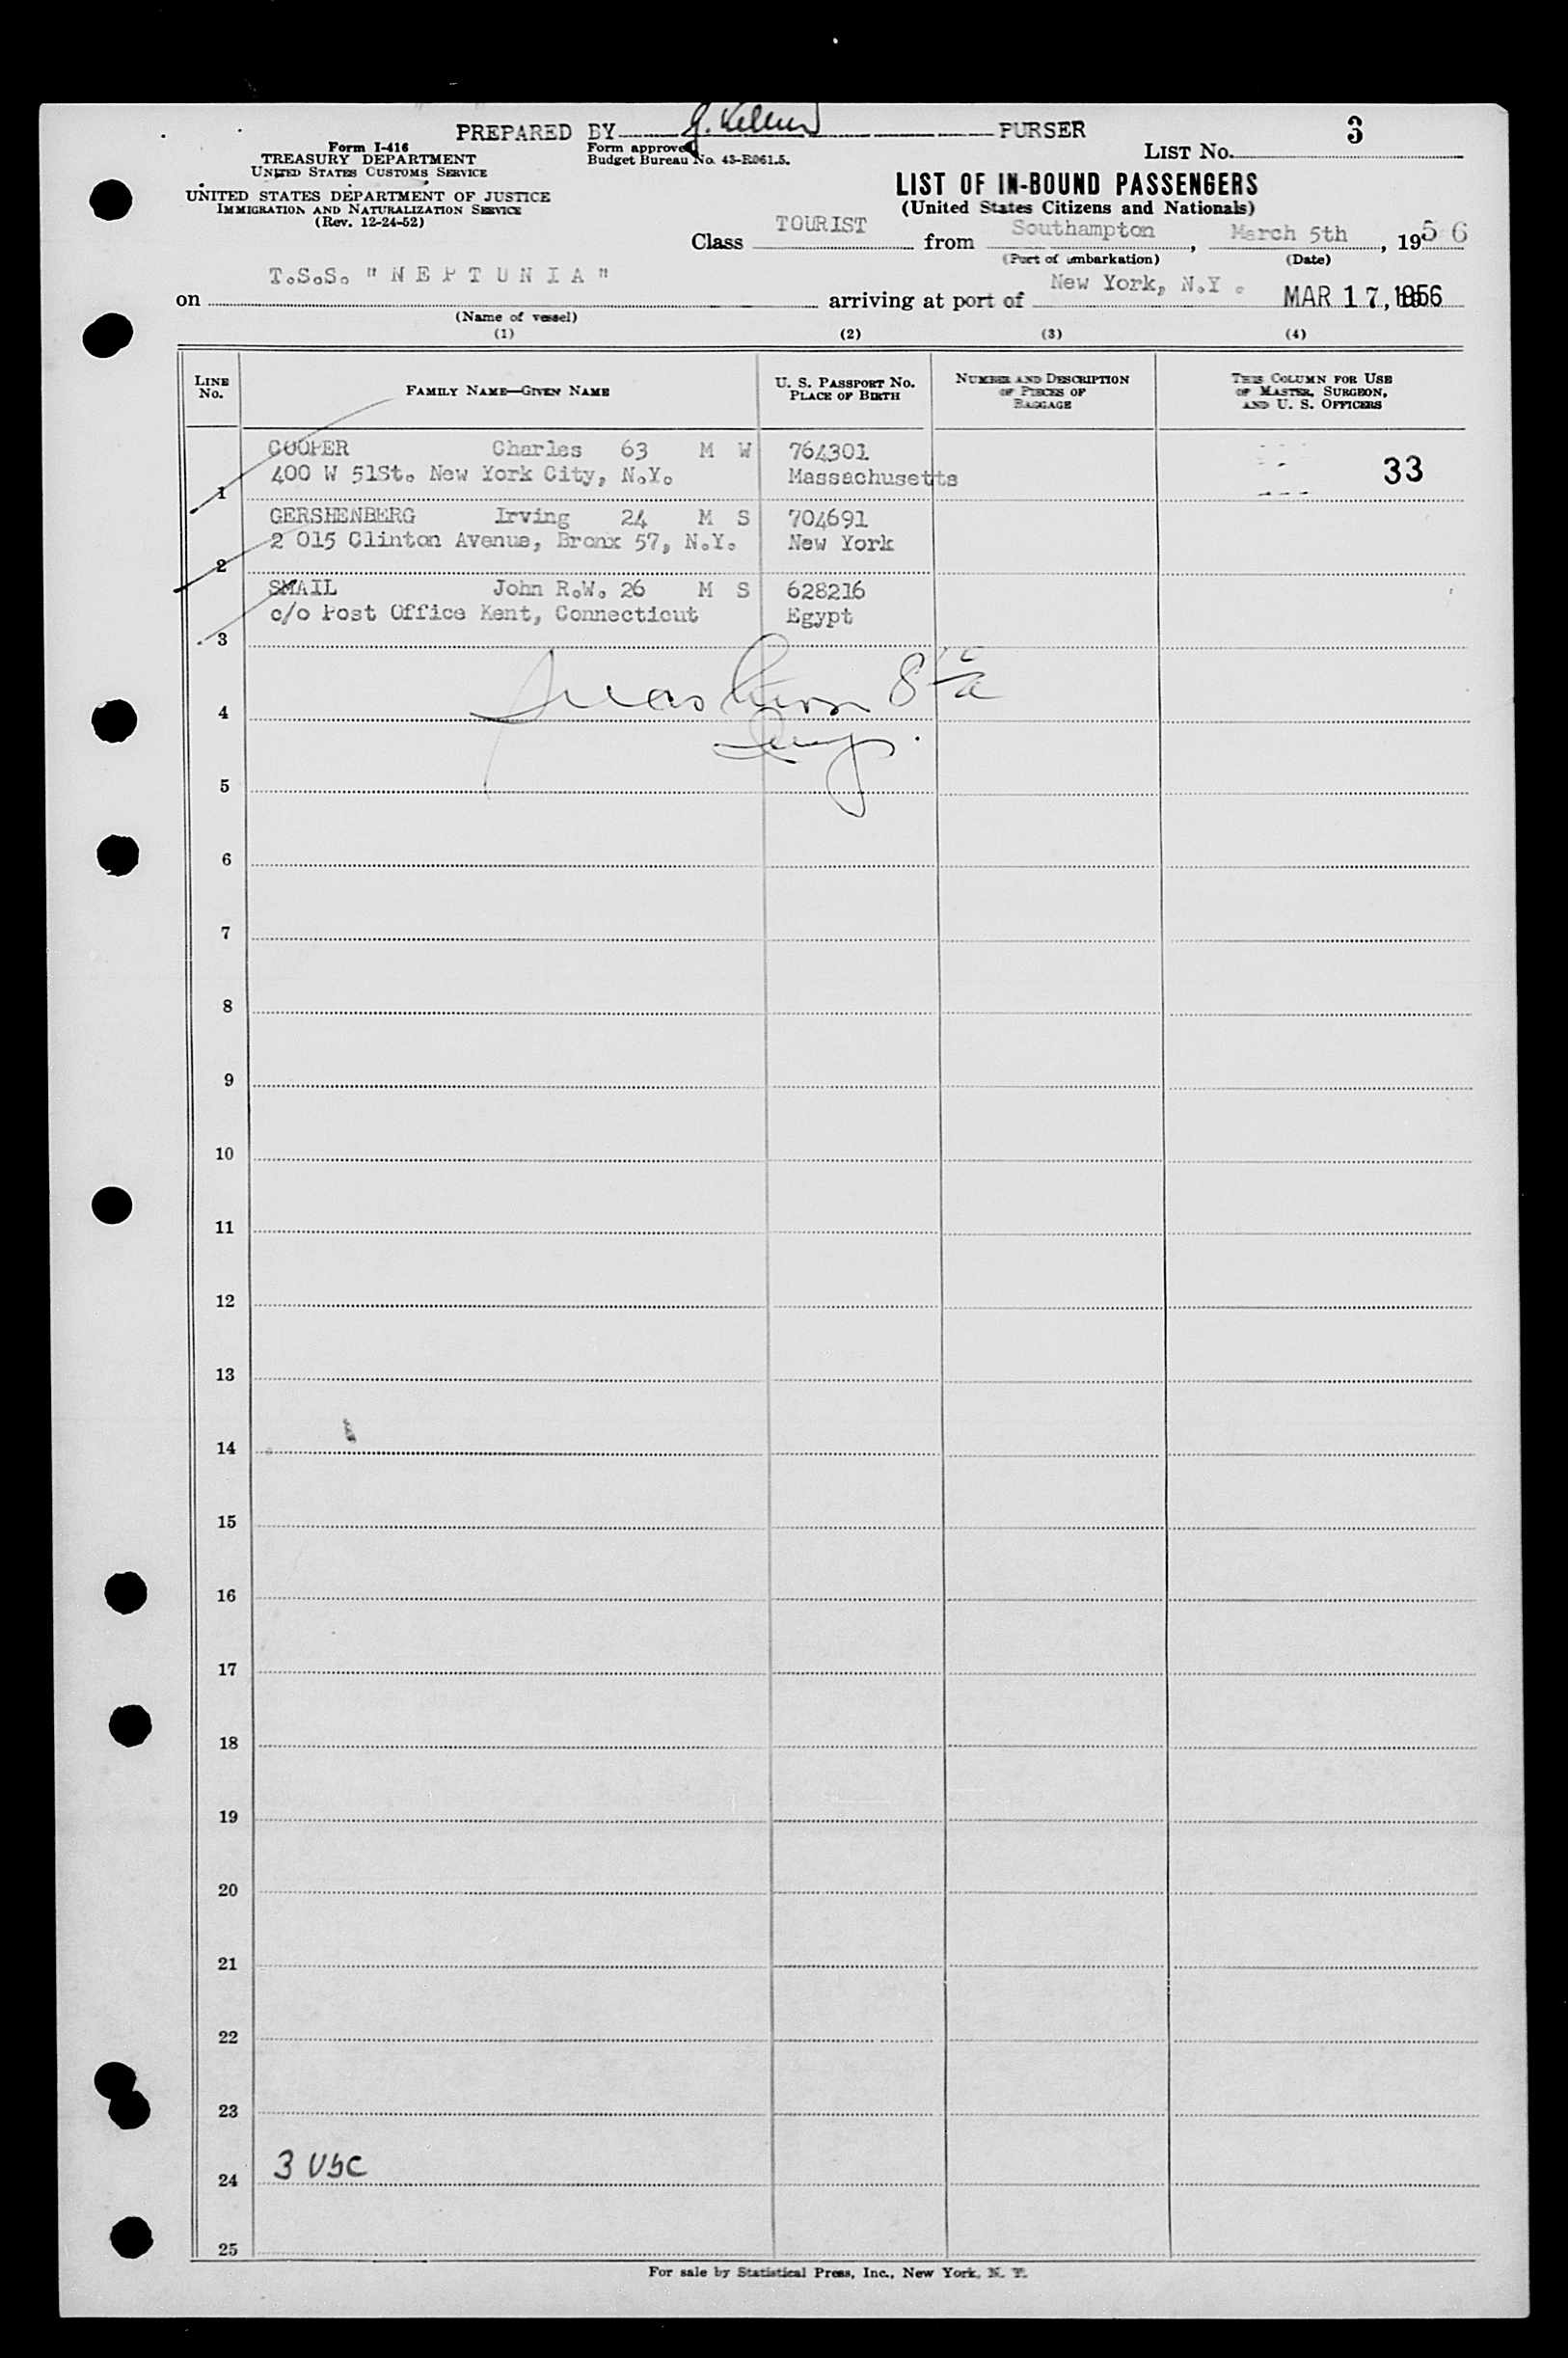 PREPARED BY PURSER
3
Form I-416
TREASURY DEPARTMENT
UNITED STATES CUSTOMS SERVICE
UNITED STATES DEPARTMENT OF JUSTICE
IMMIGRATION AND NATURALIZATION SERVICE
(Rev. 12-24-52)
Form approved
Budget Bureau No. 43-R061.5.
LIST No.
LIST OF IN-BOUND PASSENGERS
(United States Citizens and Nationals)
Class TOURIST from Southampton, March 5th, 1956
(Port of embarkation) (Date)
on T.S.S. "N E P T U N I A" arriving at port of New York, N.Y. MAR 17, 1956
(Name of vessel)
(1) (2) (3) (4)
LINE No. FAMILY NAME—GIVEN NAME U. S. PASSPORT No. PLACE OF BIRTH NUMBER AND DESCRIPTION OF PIECES OF BAGGAGE THIS COLUMN FOR USE OF MASTER, SURGEON, AND U. S. OFFICERS
COOPER Charles 63 M W 764301
400 W 51St. New York City, N.Y. Massachusetts 33
1
GERSHENBERG Irving 24 M S 704691
2 015 Clinton Avenue, Bronx 57, N.Y. New York
2
SMAIL John R.W. 26 M S 628216
c/o Post Office Kent, Connecticut Egypt
3
4
5
6
7
8
9
10
11
12
13
14
15
16
17
18
19
20
21
22
23
24 3 USC
25
For sale by Statistical Press, Inc., New York, N. Y.